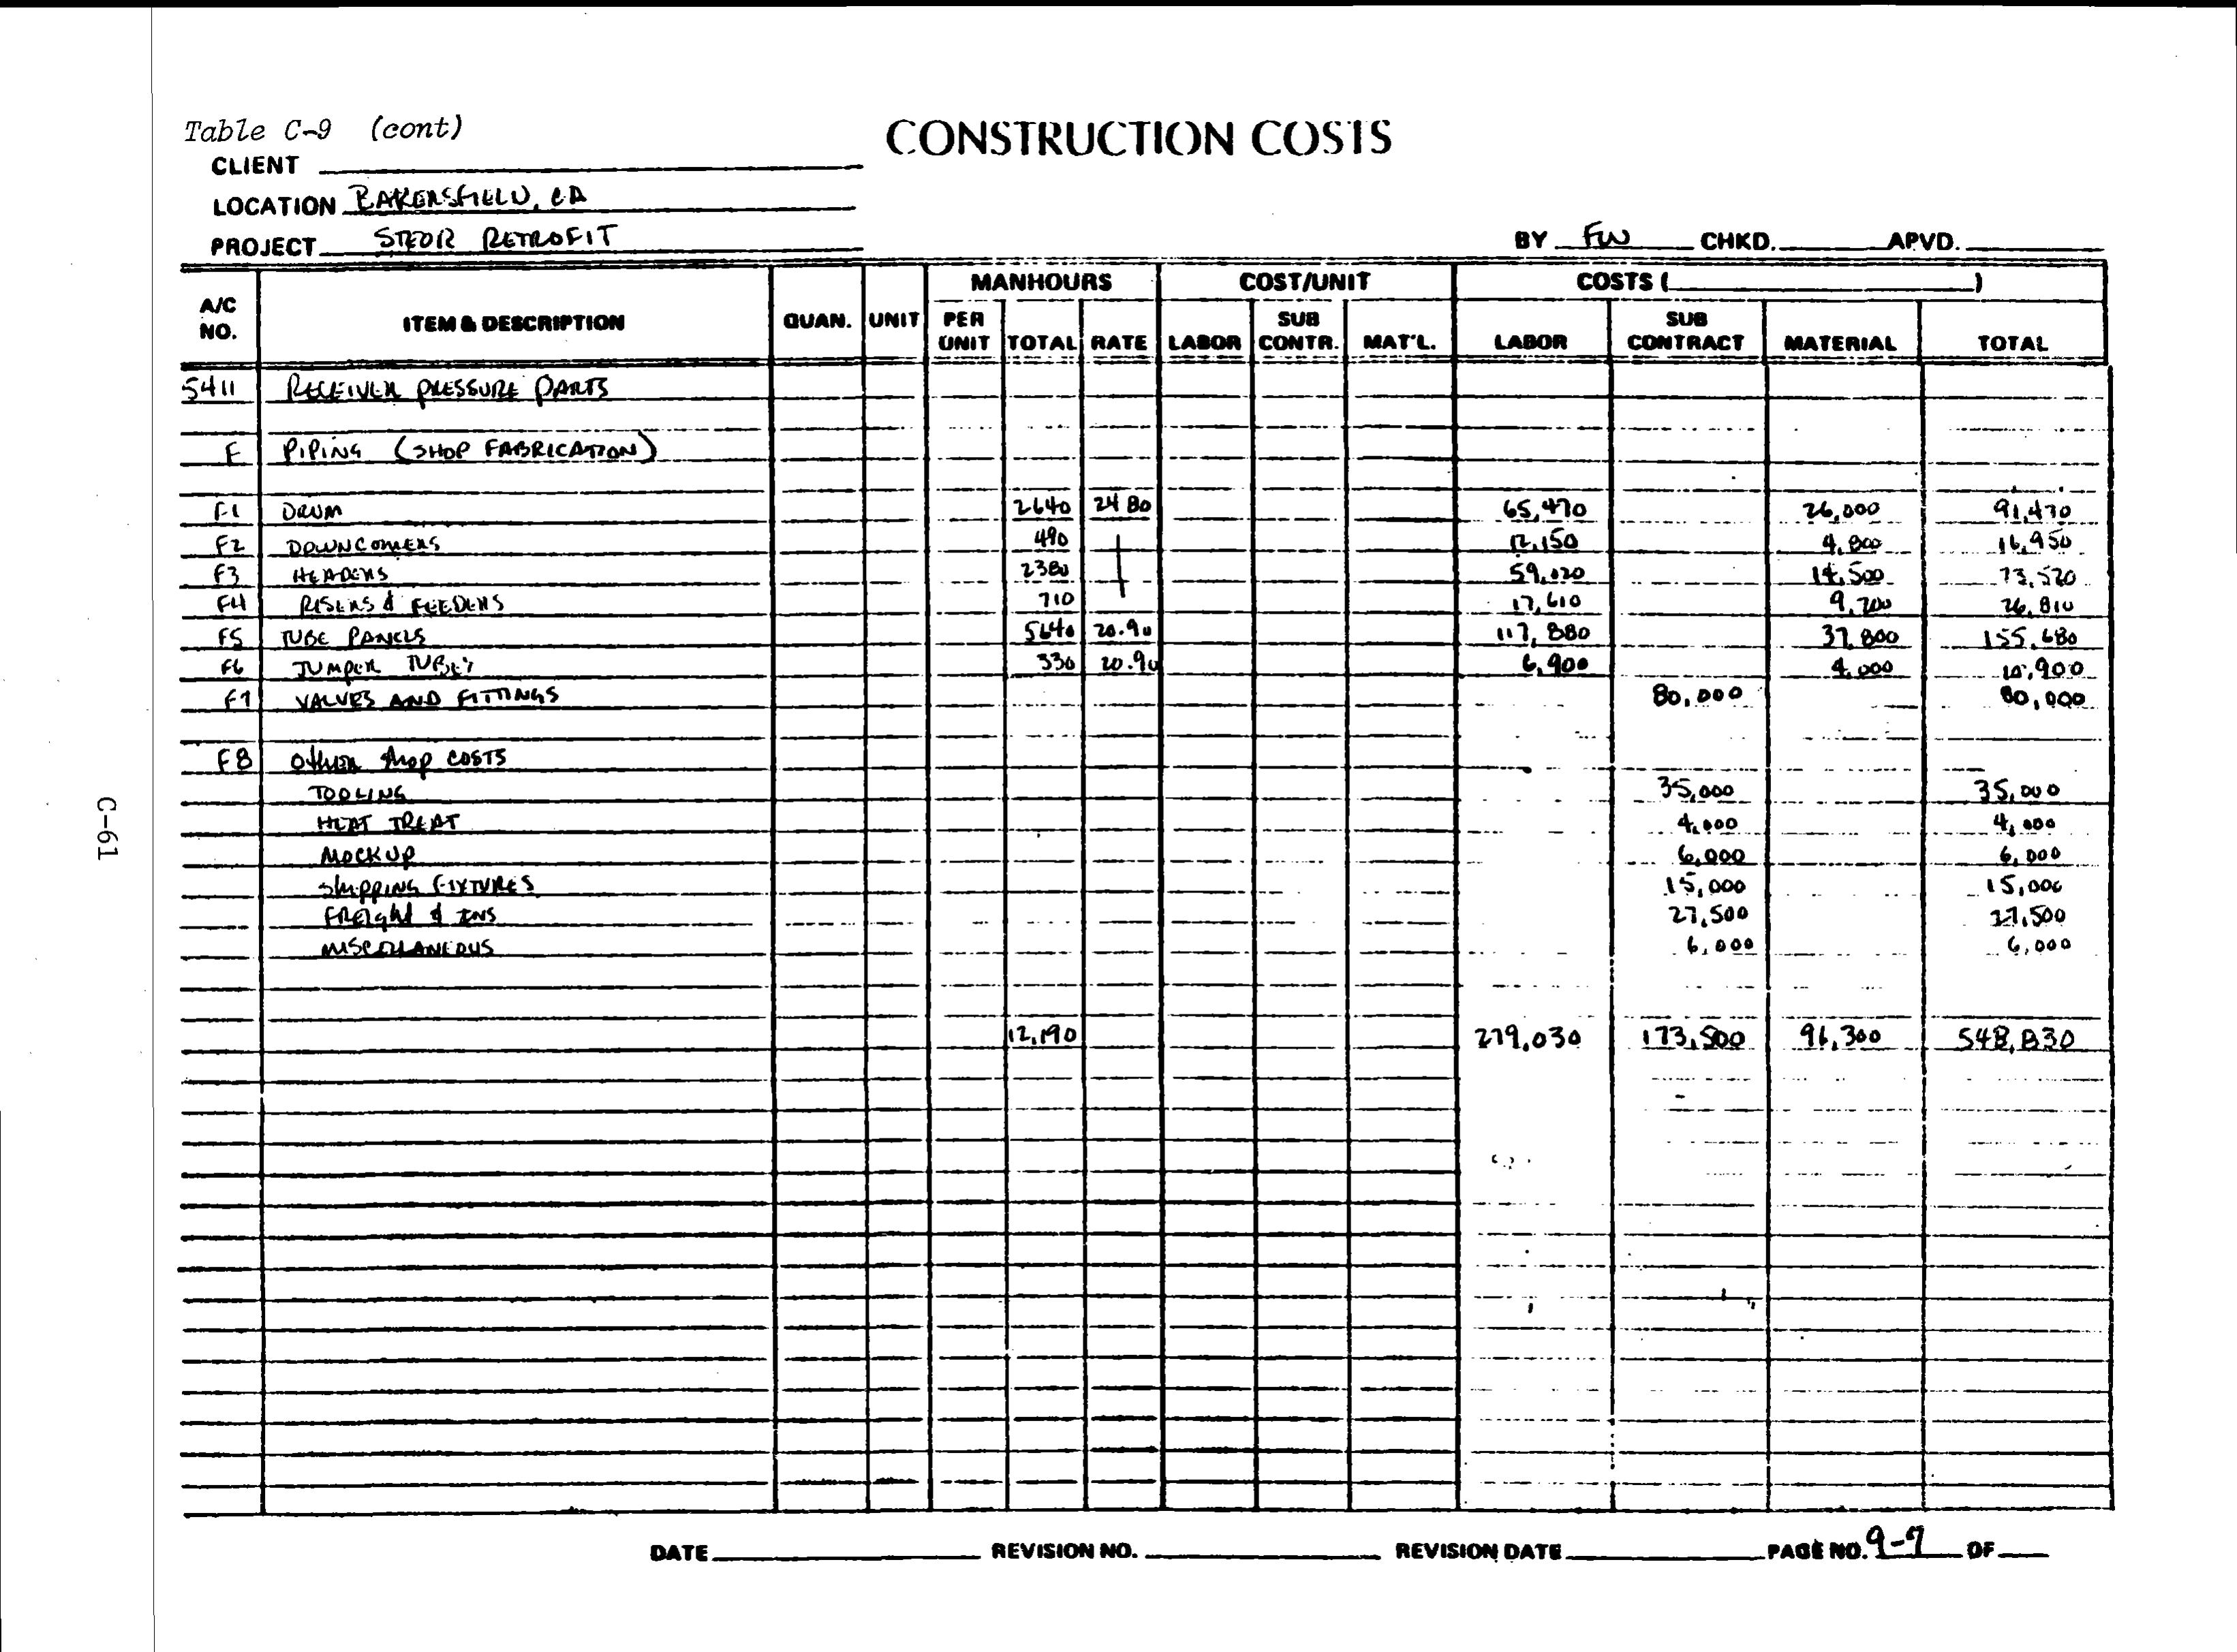 Table C-9 (cont)
CONSTRUCTION COSTS
CLIENT
LOCATION BAKERSFIELD, CA
PROJECT STEOR RETROFIT
BY FW CHKD. APVD.
A/C NO. ITEM & DESCRIPTION QUAN. UNIT MANHOURS PER UNIT TOTAL RATE COST/UNIT LABOR SUB CONTR. MAT'L. COSTS ( ) LABOR SUB CONTRACT MATERIAL TOTAL
5411 RECEIVER PRESSURE PARTS
F PIPING (SHOP FABRICATION)
F1 DRUM 2640 24 80 65,470 26,000 91,470
F2 DOWNCOMERS 490 12,150 4,800 16,950
F3 HEADERS 2380 59,020 14,500 73,520
F4 RISERS & FEEDERS 710 17,610 9,200 26,810
F5 TUBE PANELS 5640 20.90 117,880 37,800 155,680
F6 JUMPER TUBES 330 20.90 6,900 4,000 10,900
F7 VALVES AND FITTINGS 80,000 80,000
F8 OTHER SHOP COSTS
TOOLING 35,000 35,000
HEAT TREAT 4,000 4,000
MOCKUP 6,000 6,000
SHIPPING FIXTURES 15,000 15,000
FREIGHT & INS 27,500 27,500
MISCELLANEOUS 6,000 6,000
12,190 279,030 173,500 96,300 548,830
DATE REVISION NO. REVISION DATE PAGE NO. 9-7 OF
C-61